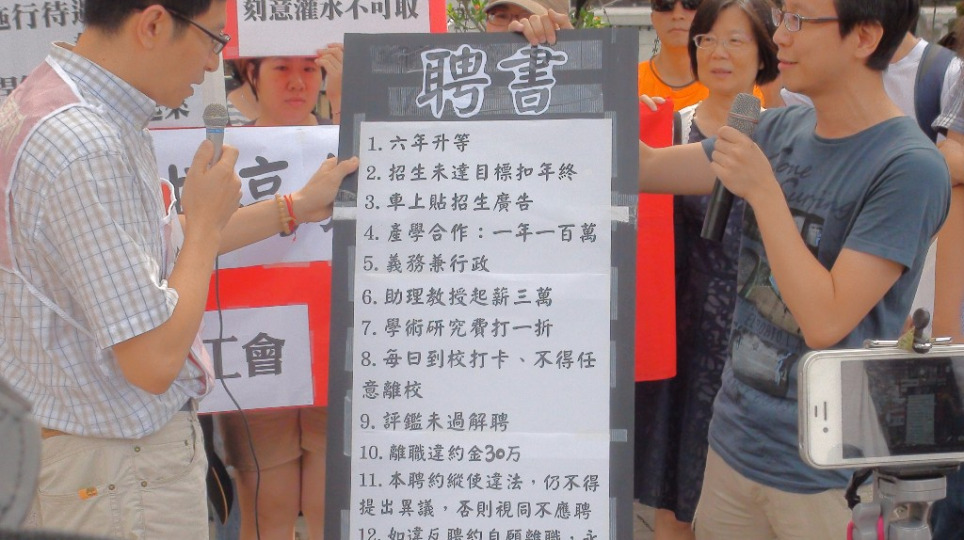 刻意灌水不可取
聘書
1. 六年升等
2. 招生未達目標扣年終
3. 車上貼招生廣告
4. 產學合作：一年一百萬
5. 義務兼行政
6. 助理教授起薪三萬
7. 學術研究費打一折
8. 每日到校打卡、不得任
意離校
9. 評鑑未過解聘
10. 離職違約金30万
11. 本聘約縱使違法，仍不得
提出異議，否則視同不應聘
12. 如違反聘約自願離職，永
工會